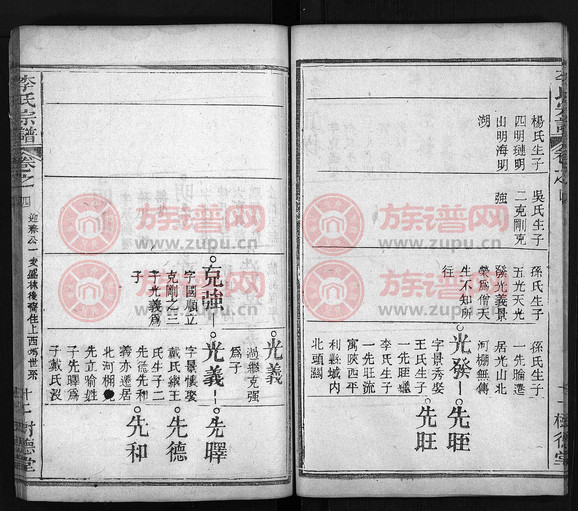 李氏宗譜
楊氏生子
四明璉明
山明海明
湖
吳氏生子
二克剛克
強
孫氏生子
五光天光
發光義景
榮爲僧天
生不知所
往
孫氏生子
一先掄遷
居光山北
河棚無傳
光發
先旺
字景秀娶
王氏生子
一先旺繼
李氏生子
一先旺流
寓陝西平
利縣城内
北頭關
先旺
樹德堂
光義
過繼克強
爲子
克強
光義
先曎
字國順立
克剛之三
子光義爲
子
字景懷娶
戴氏續王
氏生子二
先德先和
義亦遷居
北河棚
先立喻姓
子先曎爲
子戴氏沒
先德
先和
李氏宗譜
卷之四
十二
樹德堂
族谱网
www.zupu.cn
族谱网
www.zupu.cn
族谱网
www.zupu.cn
族谱网
www.zupu.cn